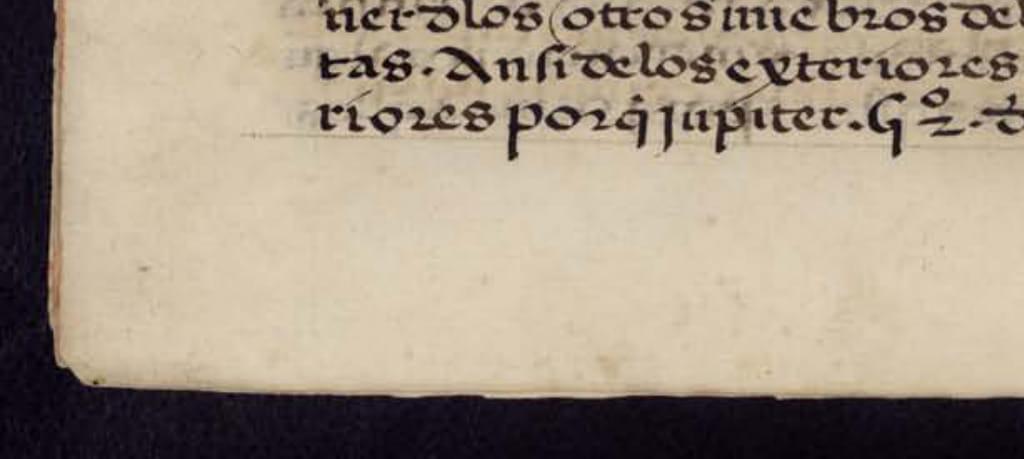 ner dlos otros mie bros del
tas. Ansi delos exteriores
riores porq̃ jupiter. G